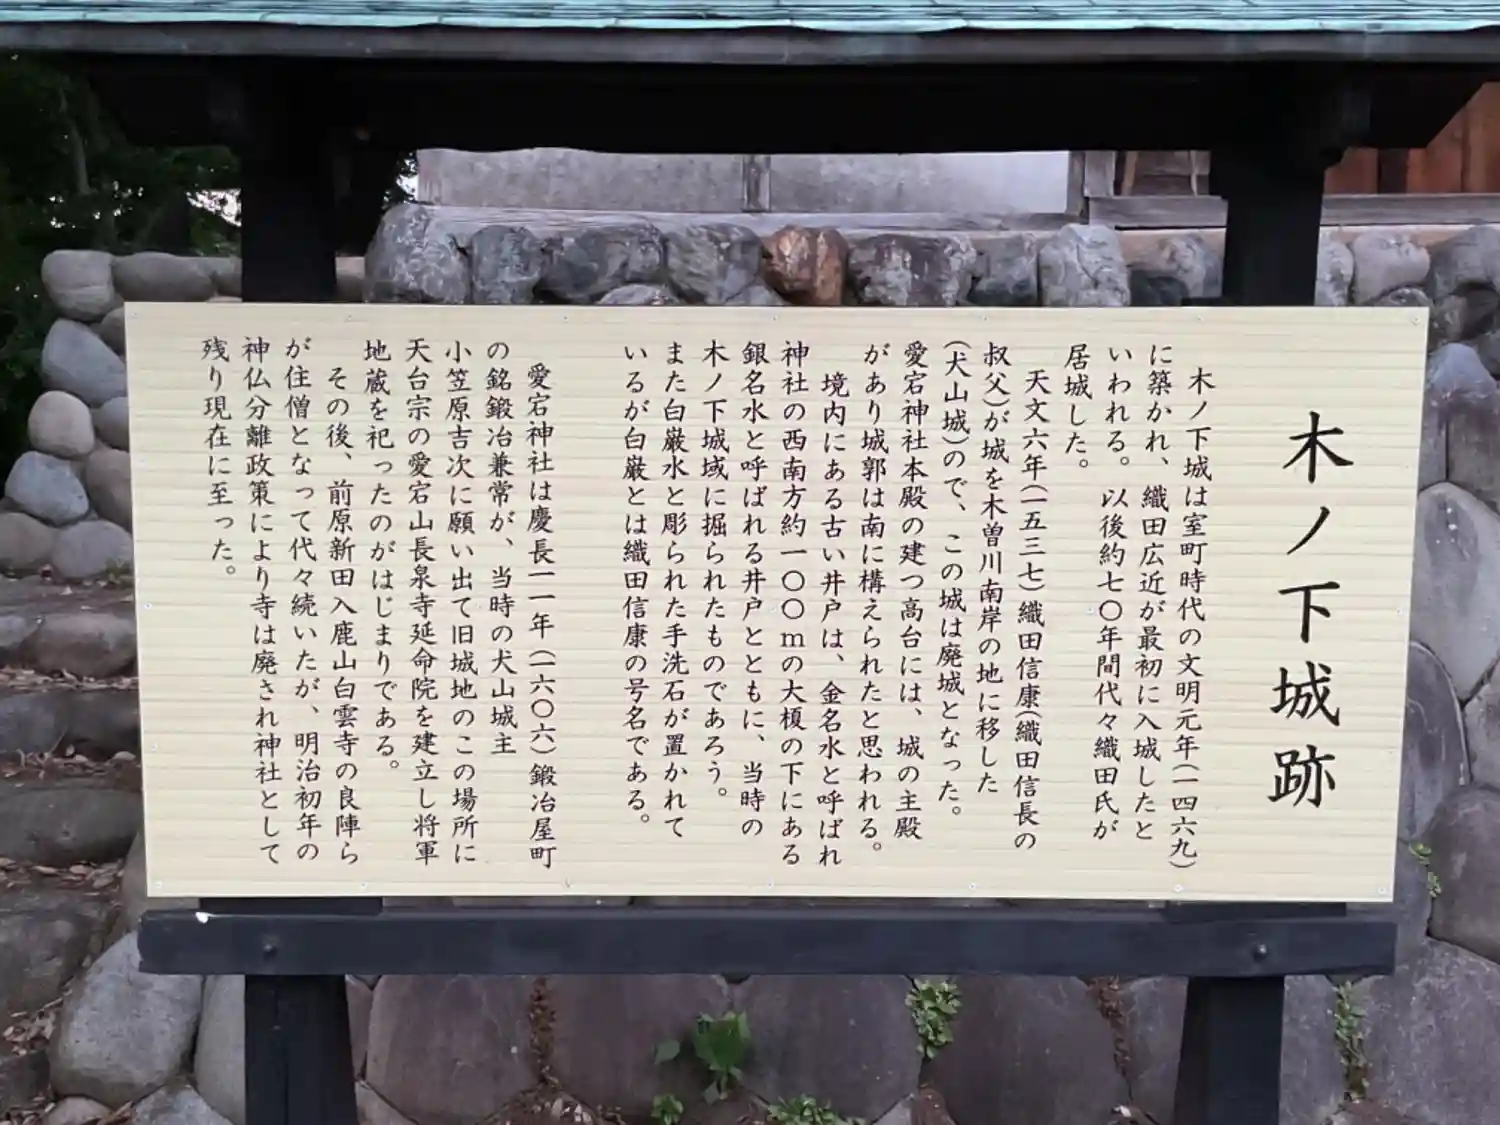 木ノ下城跡
木ノ下城は室町時代の文明元年(一四六九)
に築かれ、織田広近が最初に入城したと
いわれる。以後約七〇年間代々織田氏が
居城した。
天文六年(一五三七)織田信康(織田信長の
叔父)が城を木曽川南岸の地に移した
(犬山城)ので、この城は廃城となった。
愛宕神社本殿の建つ高台には、城の主殿
があり城郭は南に構えられたと思われる。
境内にある古い井戸は、金名水と呼ばれ
神社の西南方約一〇〇mの大榎の下にある
銀名水と呼ばれる井戸とともに、当時の
木ノ下城域に掘られたものであろう。
また白厳水と彫られた手洗石が置かれて
いるが白厳とは織田信康の号名である。
愛宕神社は慶長一一年(一六〇六)鍛冶屋町
の銘鍛冶兼常が、当時の犬山城主
小笠原吉次に願い出て旧城地のこの場所に
天台宗の愛宕山長泉寺延命院を建立し将軍
地蔵を祀ったのがはじまりである。
その後、前原新田入鹿山白雲寺の良陣ら
が住僧となって代々続いたが、明治初年の
神仏分離政策により寺は廃され神社として
残り現在に至った。